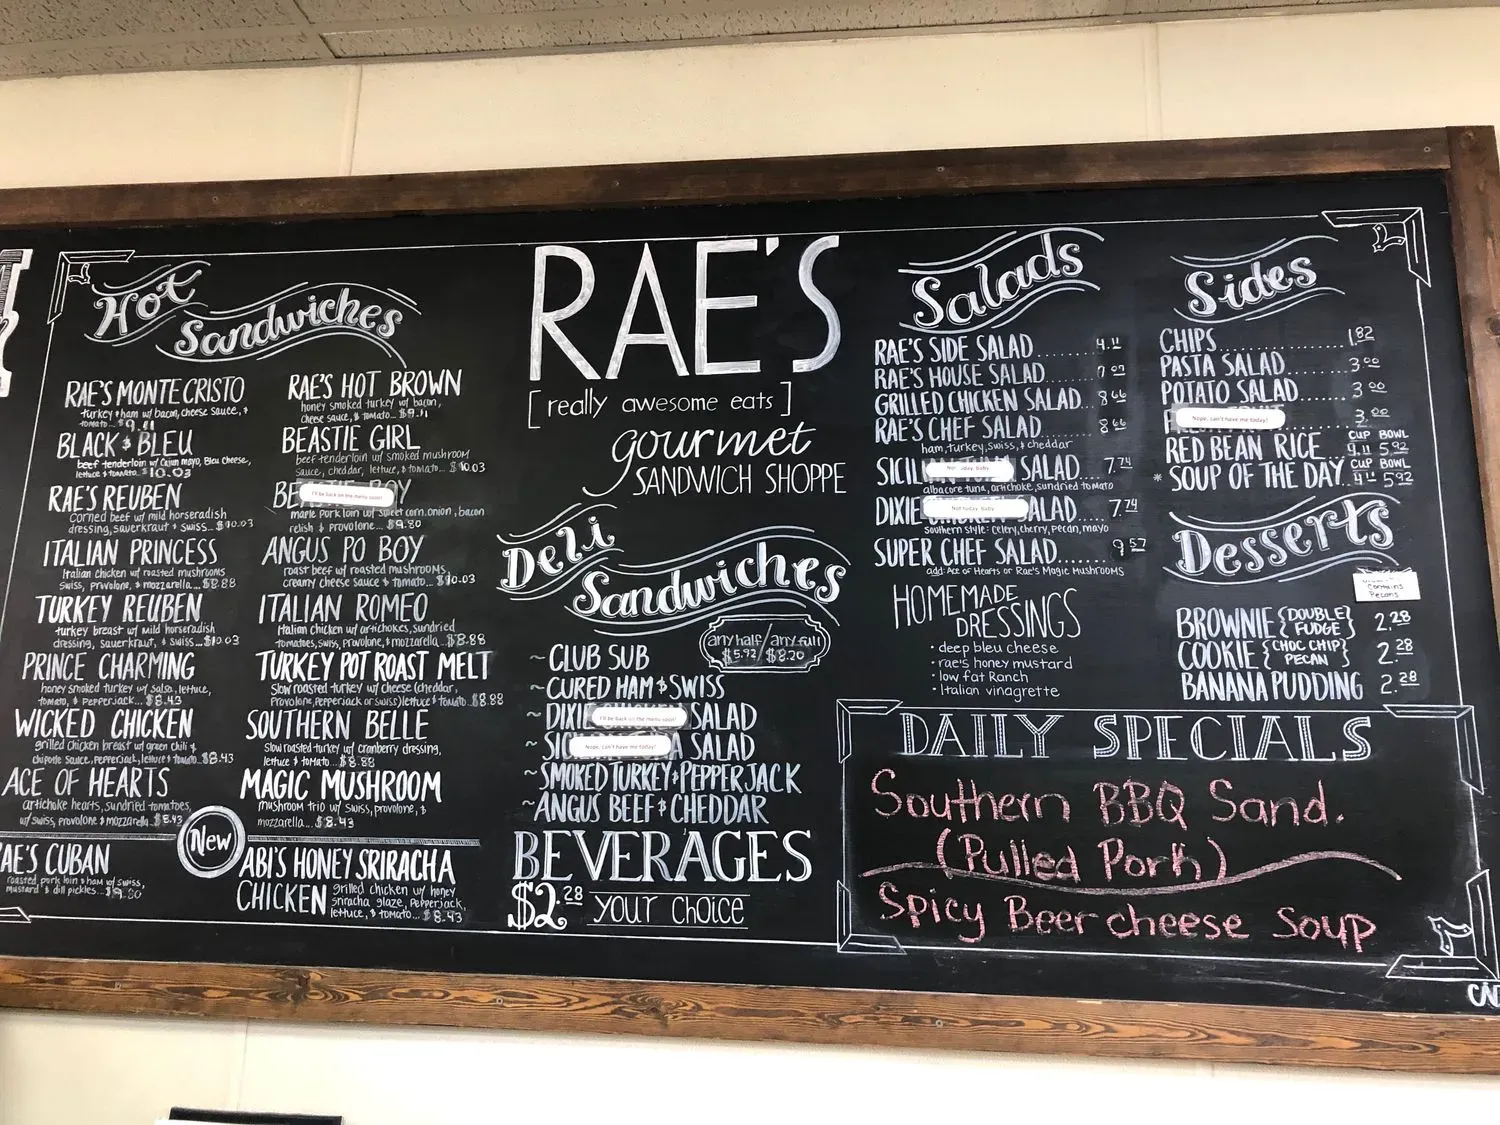 Hot
Sandwiches
RAE'S MONTE CRISTO
turkey + ham w/ bacon, cheese sauce, +
tomato... $9.11
BLACK & BLEU
beef tenderloin w/ Cajun mayo, Bleu Cheese,
lettuce & tomato... $10.03
RAE'S REUBEN
Corned beef w/ mild horseradish
dressing, sauerkraut & swiss... $10.03
ITALIAN PRINCESS
Italian chicken w/ roasted mushrooms
Swiss, provolone, & mozzarella... $8.88
TURKEY REUBEN
turkey breast w/ mild horseradish
dressing, sauerkraut, & swiss... $10.03
PRINCE CHARMING
honey smoked turkey w/ salsa, lettuce,
tomato, & pepperjack... $8.43
WICKED CHICKEN
grilled chicken breast w/ green chili &
chipotle sauce, pepperjack, lettuce & tomato... $8.43
ACE OF HEARTS
artichoke hearts, sundried tomatoes,
w/ swiss, provolone & mozzarella... $8.43
AE'S CUBAN
roasted pork loin & ham w/ swiss,
mustard & dill pickles... $9.80
RAE'S HOT BROWN
honey smoked turkey w/ bacon,
cheese sauce, & tomato... $9.11
BEASTIE GIRL
beef tenderloin w/ smoked mushroom
sauce, cheddar, lettuce, & tomato... $10.03
BE OY
I'll be back on the menu soon!
maple pork loin w/ sweet corn, onion, bacon
relish & provolone... $9.80
ANGUS PO BOY
roast beef w/ roasted mushrooms,
creamy cheese sauce & tomato... $10.03
ITALIAN ROMEO
Italian chicken w/ artichokes, sundried
tomatoes, swiss, provolone, & mozzarella... $8.88
TURKEY POT ROAST MELT
Slow roasted turkey w/ cheese (cheddar,
Provolone, pepperjack or swiss) lettuce & tomato... $8.88
SOUTHERN BELLE
Slow roasted turkey w/ cranberry dressing,
lettuce & tomato... $8.88
MAGIC MUSHROOM
mushroom trio w/ swiss, provolone, &
mozzarella... $8.43
New
ABI'S HONEY SRIRACHA
CHICKEN grilled chicken w/ honey
sriracha glaze, pepperjack,
lettuce, & tomato... $8.43
RAE'S
[really awesome eats]
gourmet
SANDWICH SHOPPE
Deli
Sandwiches
any half / any full
$5.92 / $8.20
~ CLUB SUB
~ CURED HAM & SWISS
~ DIXIE SALAD
I'll be back on the menu soon!
~ SIC A SALAD
Nope, can't have me today!
~ SMOKED TURKEY & PEPPER JACK
~ ANGUS BEEF & CHEDDAR
BEVERAGES
$2.28 YOUR CHOICE
Salads
RAE'S SIDE SALAD........ 4.11
RAE'S HOUSE SALAD...... 7.07
GRILLED CHICKEN SALAD.. 8.66
RAE'S CHEF SALAD....... 8.66
ham, turkey, swiss, & cheddar
SICIL SALAD... 7.74
day, baby
albacore tuna, artichoke, sundried tomato
DIXIE ALAD.... 7.74
Not today, baby
Southern style: celery, cherry, pecan, mayo
SUPER CHEF SALAD....... 9.57
add: Ace of Hearts or Rae's Magic Mushrooms
HOMEMADE
DRESSINGS
• deep bleu cheese
• rae's honey mustard
• low fat Ranch
• Italian vinagrette
Sides
CHIPS................ 1.82
PASTA SALAD........ 3.00
POTATO SALAD...... 3.00
Nope, can't have me today!
3.00
CUP BOWL
RED BEAN RICE.. 4.11 5.92
CUP BOWL
* SOUP OF THE DAY.. 4.11 5.92
Desserts
Contains
Pecans
BROWNIE {DOUBLE FUDGE} 2.28
COOKIE {CHOC CHIP PECAN} 2.28
BANANA PUDDING 2.28
DAILY SPECIALS
Southern BBQ Sand.
(Pulled Pork)
Spicy Beer cheese Soup